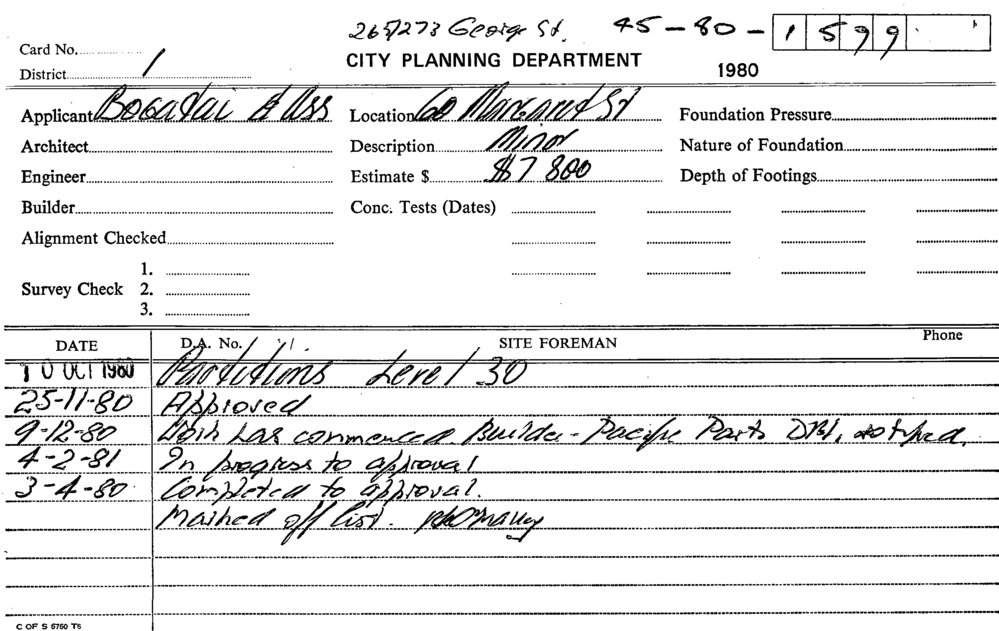 265/273 George St. 45-80-1599
Card No.
CITY PLANNING DEPARTMENT
District 1
1980
Applicant & Ass Location 60 Margaret St Foundation Pressure
Architect Description Minor Nature of Foundation
Engineer Estimate $ $7 800 Depth of Footings
Builder Conc. Tests (Dates)
Alignment Checked
1.
Survey Check 2.
3.
DATE D.A. No. SITE FOREMAN Phone
10 OCT 1980 Partitions Level 30
25-11-80 Approved
9-12-80 Work has commenced. Builder - Pacific Parts
4-2-81 In progress to approval
3-4-80 Completed to approval.
Marked off list.
C OF S 6760 T6